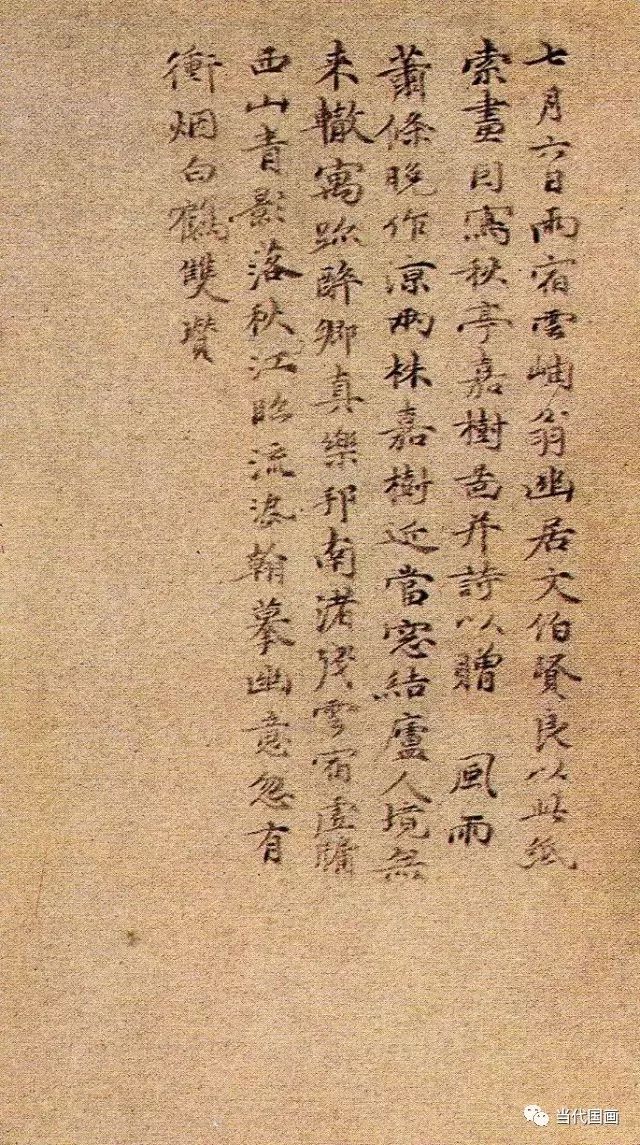 七月六日雨宿雲岫翁幽居文伯賢良以此紙
索畫因寫秋亭嘉樹啚并詩以贈 風雨
蕭條晚作涼兩株嘉樹近當窓結廬人境無
来轍寓跡醉鄉真樂邦南渚殘雲宿虛牖
西山青影落秋江臨流染翰摹幽意忽有
衝烟白鶴雙瓚
当代国画